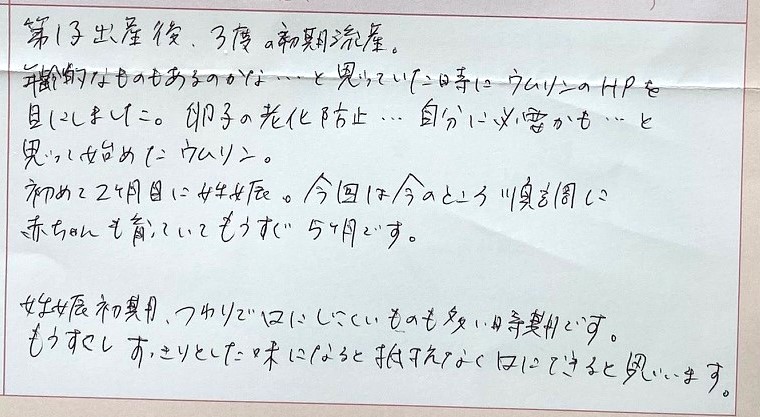 第1子出産後、3度の初期流産。
年齢的なものもあるのかな…と思っていた時にウムリンのHPを
目にしました。卵子の老化防止…自分に必要かも…と
思って始めたウムリン。
初めて2ヶ月目に妊娠。今回は今のところ順調に
赤ちゃんも育っていてもうすぐ5ヶ月です。
妊娠初期、つわりで口にしにくいものも多い時期です。
もうすこしすっきりとした味になると抵抗なく口にできると思います。